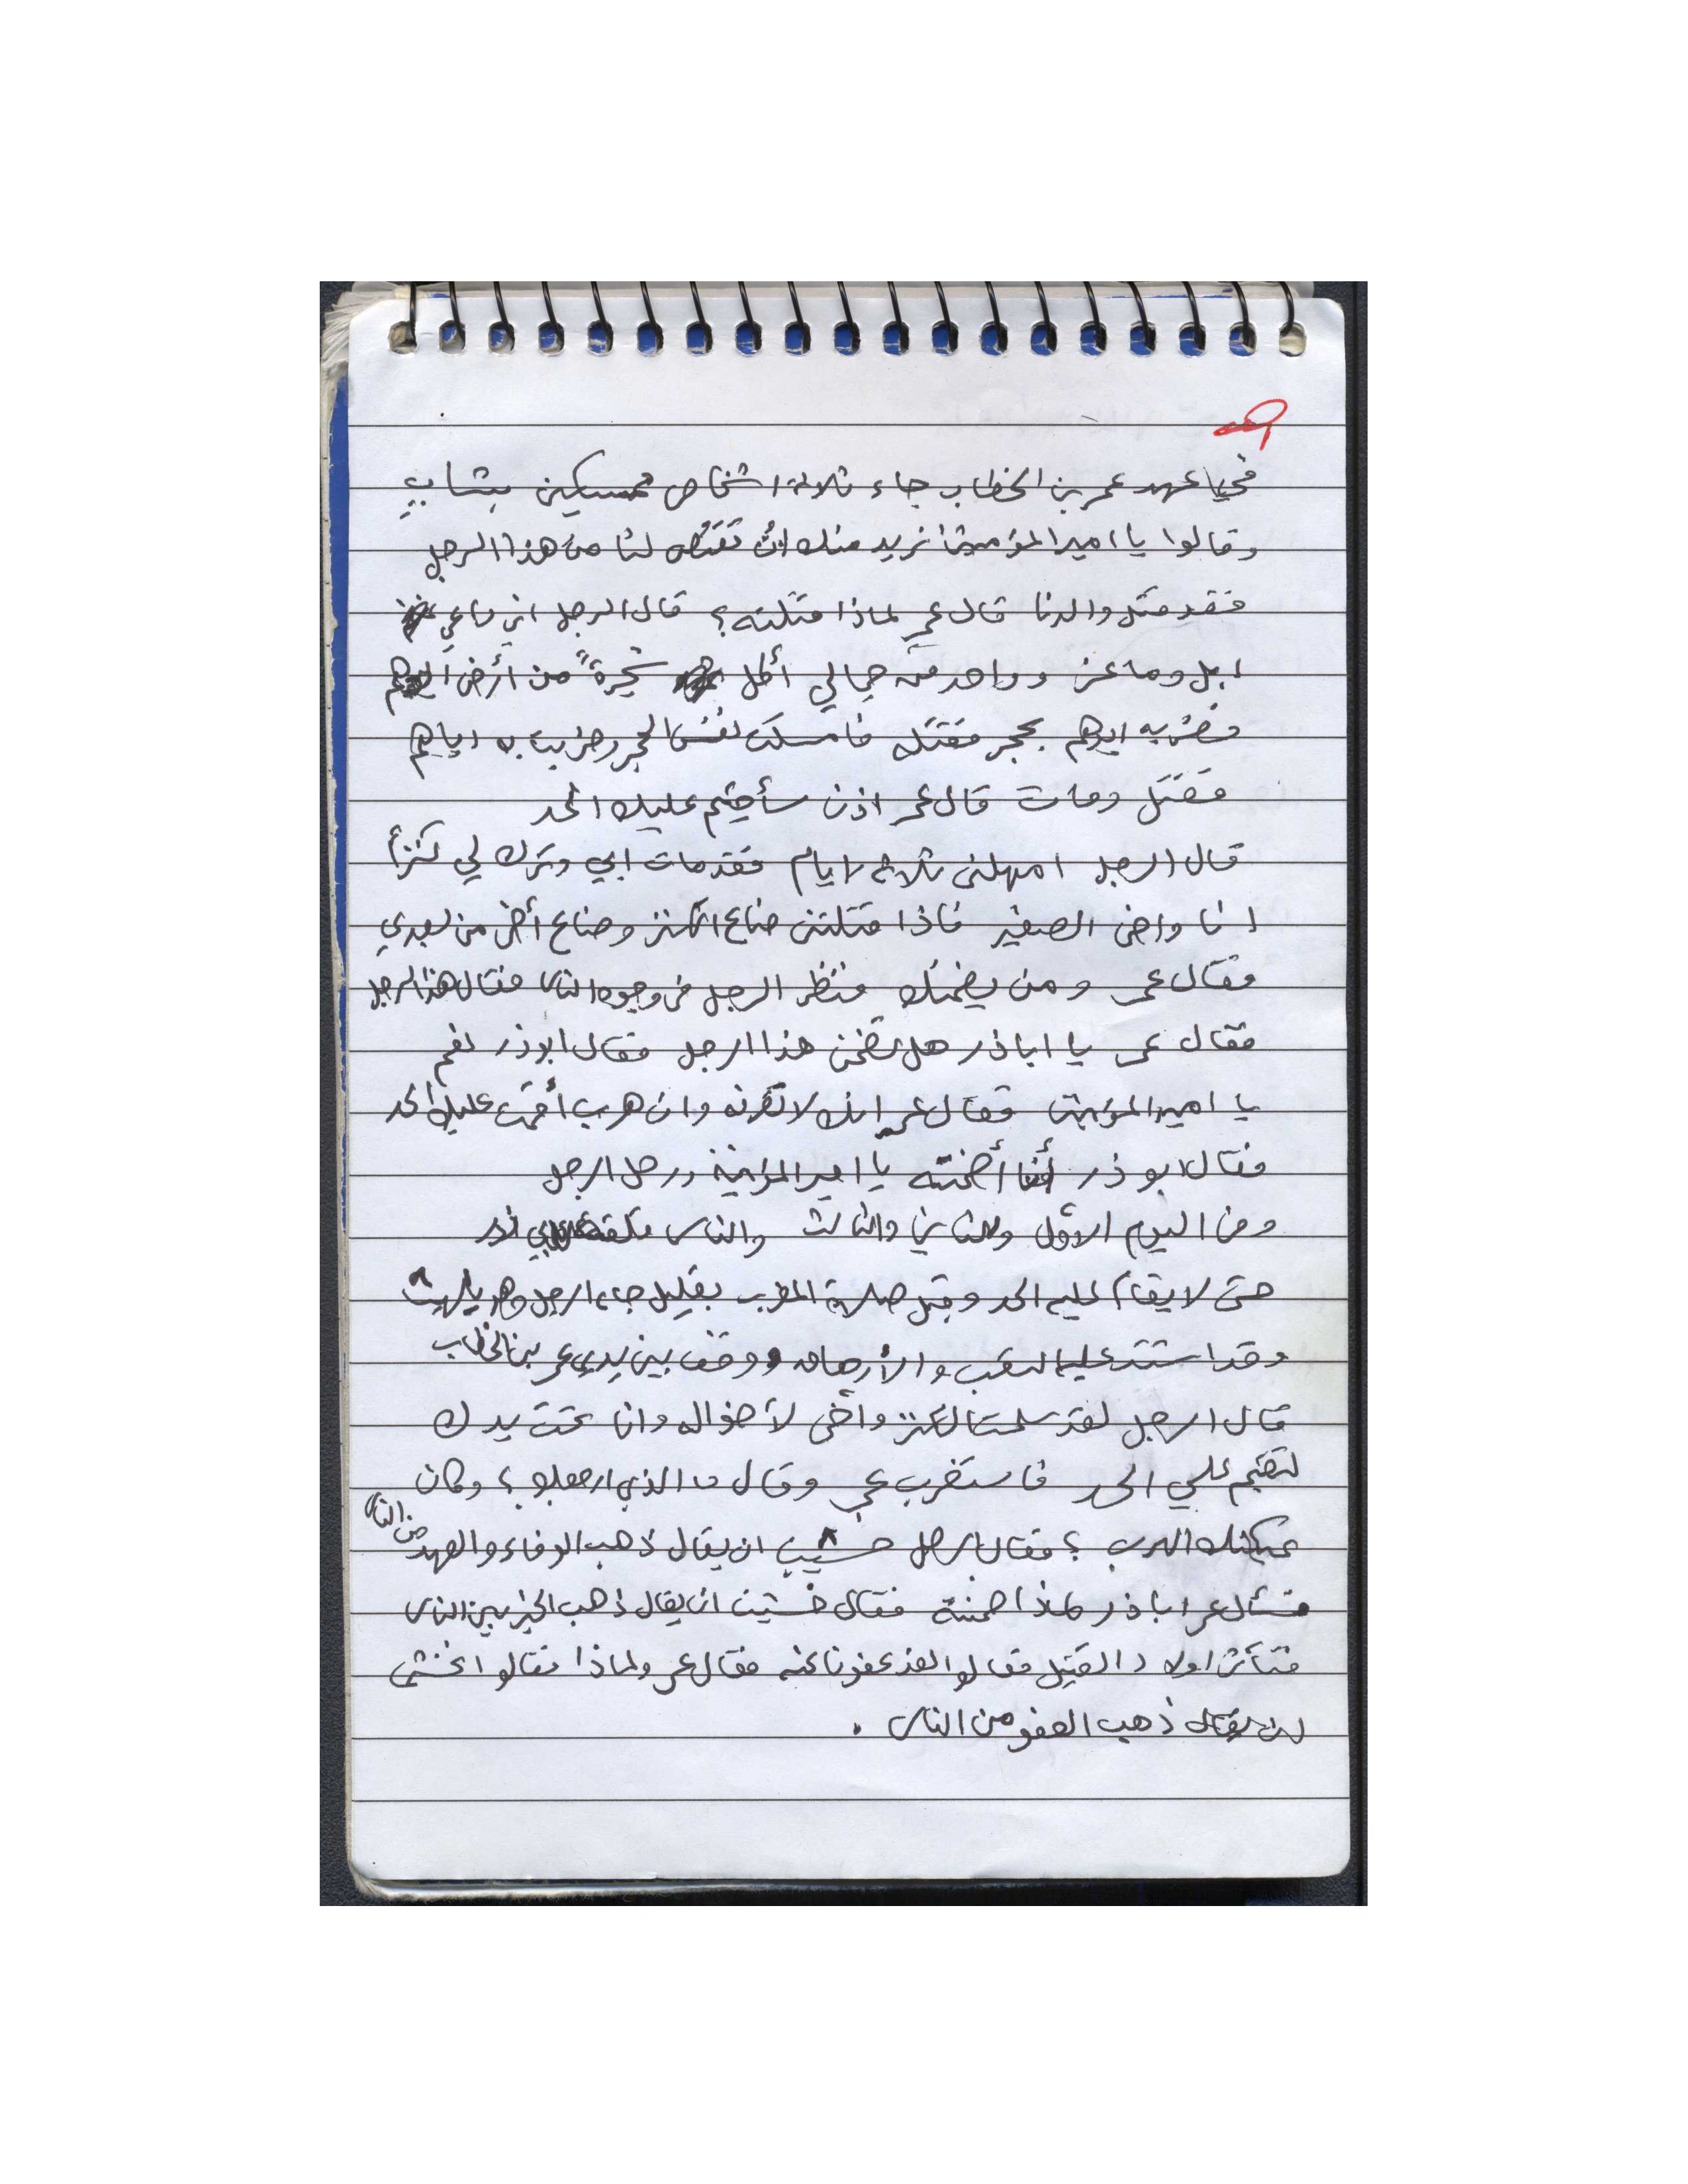 في عهد عمر بن الخطاب جاء ثلاثة اشخاص ممسكين بشاب
وقالوا يا امير المؤمنين نريد منك ان تقتص لنا من هذا الرجل
فقد قتل والدنا قال عمر لماذا قتلته؟ قال الرجل اني راعي
ابل وماعز وواحد من جمالي أكل شجرة من أرض ابوهم
فضربه ابوهم بحجر فقتله فامسكت نفس الحجر وضربت به اباهم
فقتل ومات قال عمر اذن سأقيم عليك الحد
قال الرجل امهلني ثلاثة ايام فقد مات ابي وترك لي كنزأ
انا واخي الصغير فاذا قتلتني ضاع الكنز وضاع أخي من بعدي
فقال عمر ومن يضمنك فنظر الرجل في وجوه الناس فقال هذا الرجل
فقال عمر يا اباذر هل تضمن هذا الرجل فقال ابوذر نعم
يا امير المؤمنين فقال عمر انك لا تعرفه وان هرب أقمت عليك الحد
فقال ابو ذر أنا أضمنه يا امير المؤمنين ورحل الرجل
ومر اليوم الاول والثاني والثالث والناس قلقة على ابي ذر
حتى لا يقام عليه الحد وقبل صلاة المغرب بقليل جاء الرجل وهو يلهث
وقد اشتد عليه التعب والأرهاق ووقف بين يدي عمر بن الخطاب
قال الرجل لقد سلمت الكنز وأخي لأخواله وانا تحت يدك
لتقيم علي الحد فاستغرب عمر وقال ما الذي ارجعك؟ وكان
يمكنك الهرب؟ فقال الرجل خشيت ان يقال ذهب الوفاء والعهد من الناس
فسأل عمر اباذر لماذا ضمنته فقال خشيت ان يقال ذهب الخير بين الناس
فتأثر اولاد القتيل فقالوا لقد عفونا عنه فقال عمر ولماذا فقالوا نخشى
ان يقال ذهب العفو من الناس .